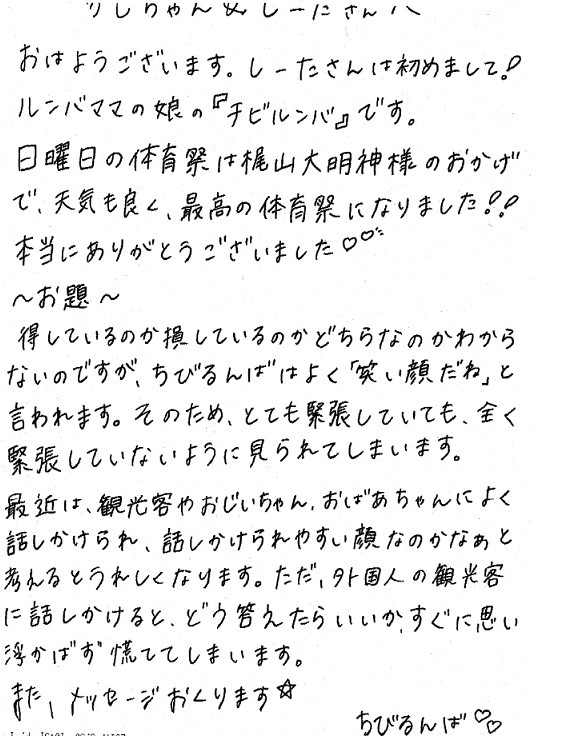 りしちゃん&しーたさんへ
おはようございます。しーたさんは初めまして!
ルンバママの娘の『チビルンバ』です。
日曜日の体育祭は梶山大明神様のおかげ
で、天気も良く、最高の体育祭になりました!!
本当にありがとうございました♡♡
〜お題〜
得しているのか損しているのかどちらなのかわから
ないのですが、ちびるんばはよく「笑い顔だね」と
言われます。そのため、とても緊張していても、全く
緊張していないように見られてしまいます。
最近は、観光客やおじいちゃん、おばあちゃんによく
話しかけられ、話しかけられやすい顔なのかなぁと
考えるとうれしくなります。ただ、外国人の観光客
に話しかけると、どう答えたらいいか、すぐに思い
浮かばず慌ててしまいます。
また、メッセージおくります☆
ちびるんば♡♡